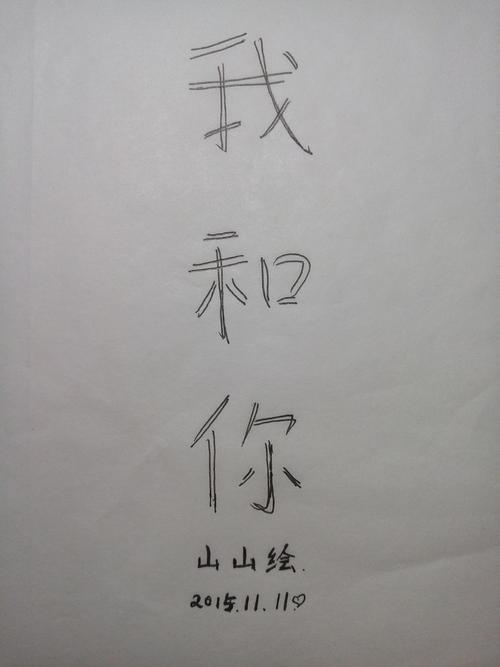 我
和
你
山山绘.
2015.11.11♡